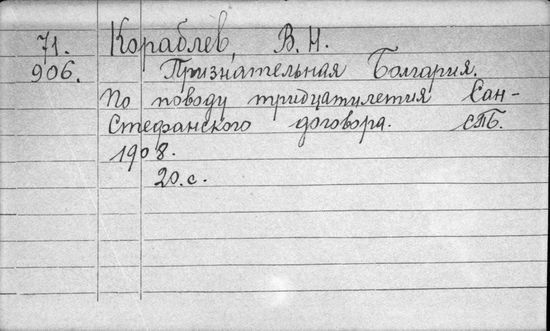 71. Кораблев, В. Н.
906. Признательная Болгария.
По поводу тридцатилетия Сан-
Стефанского договора. СПБ.
1908.
20.с.